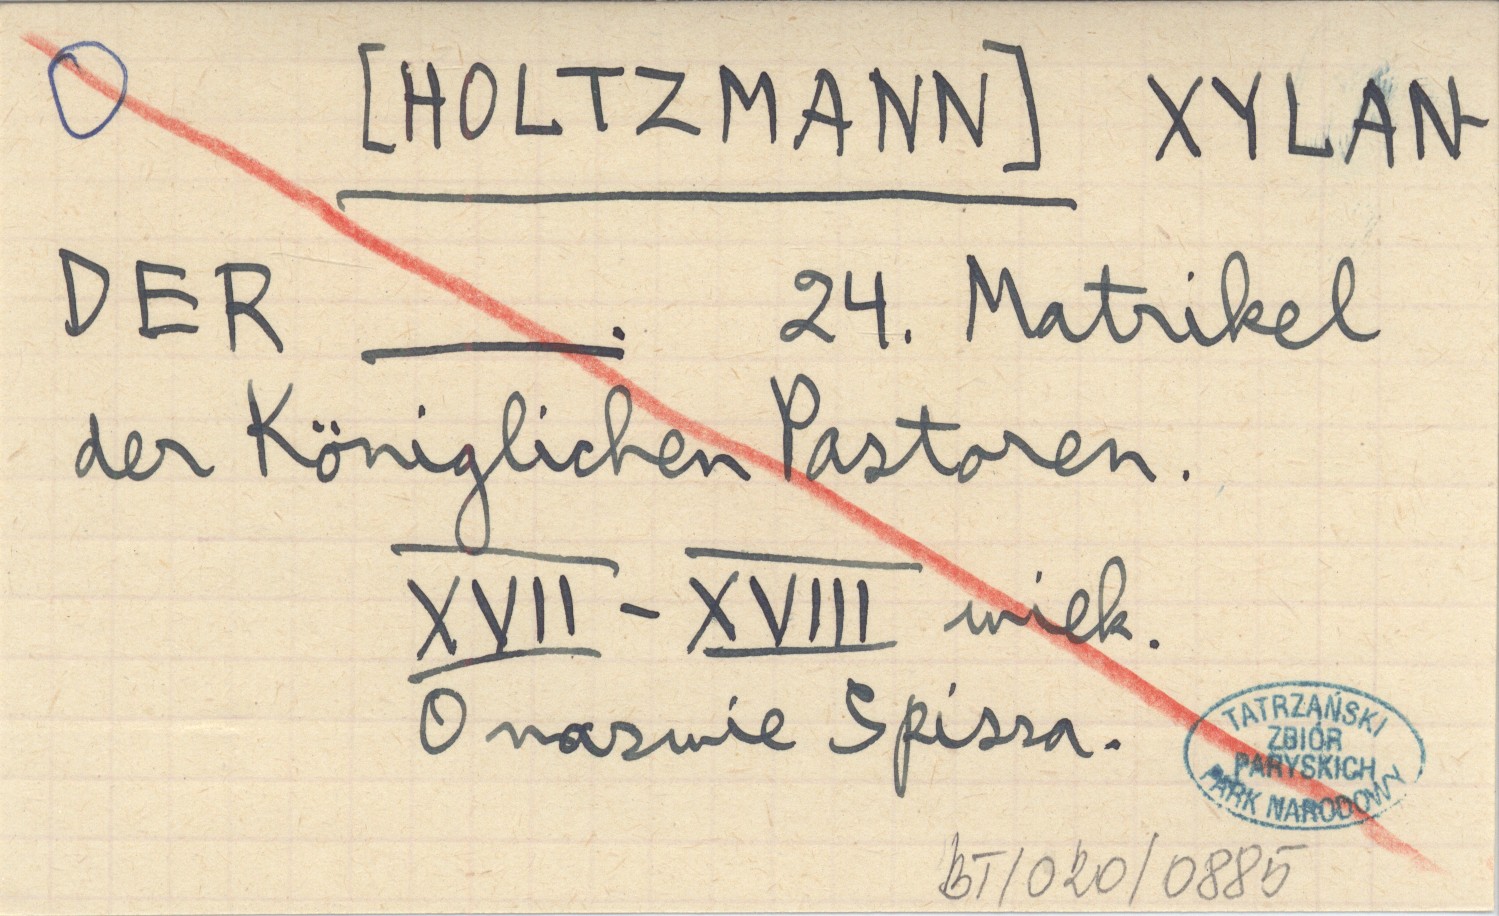 [HOLTZMANN] XYLAN-
DER ____. 24. Matrikel
der Königlichen Pastoren.
XVII - XVIII wiek.
O nazwie Spisza.
TATRZAŃSKI
ZBIÓR
PARYSKICH
PARK NARODOWY
BT/020/0885